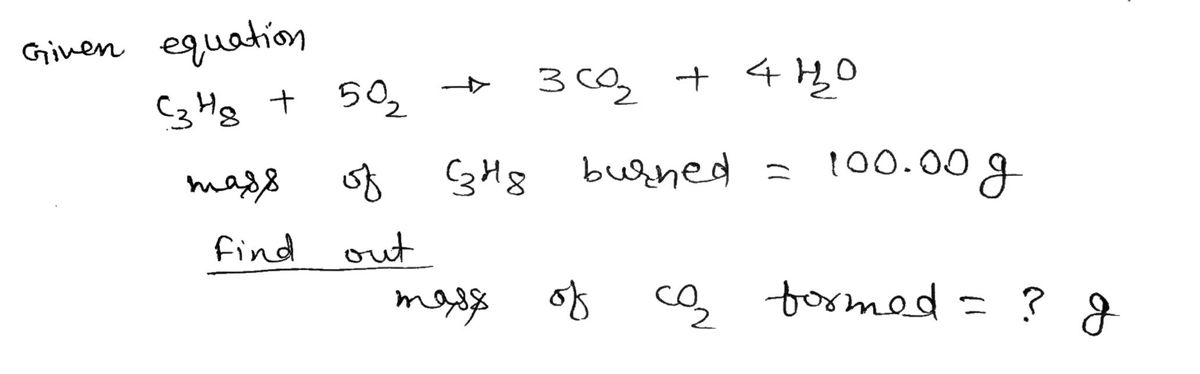 Given equation
C₃H₈ + 5O₂ → 3CO₂ + 4H₂O
mass of C₃H₈ burned = 100.00 g
find out
mass of CO₂ formed = ? g